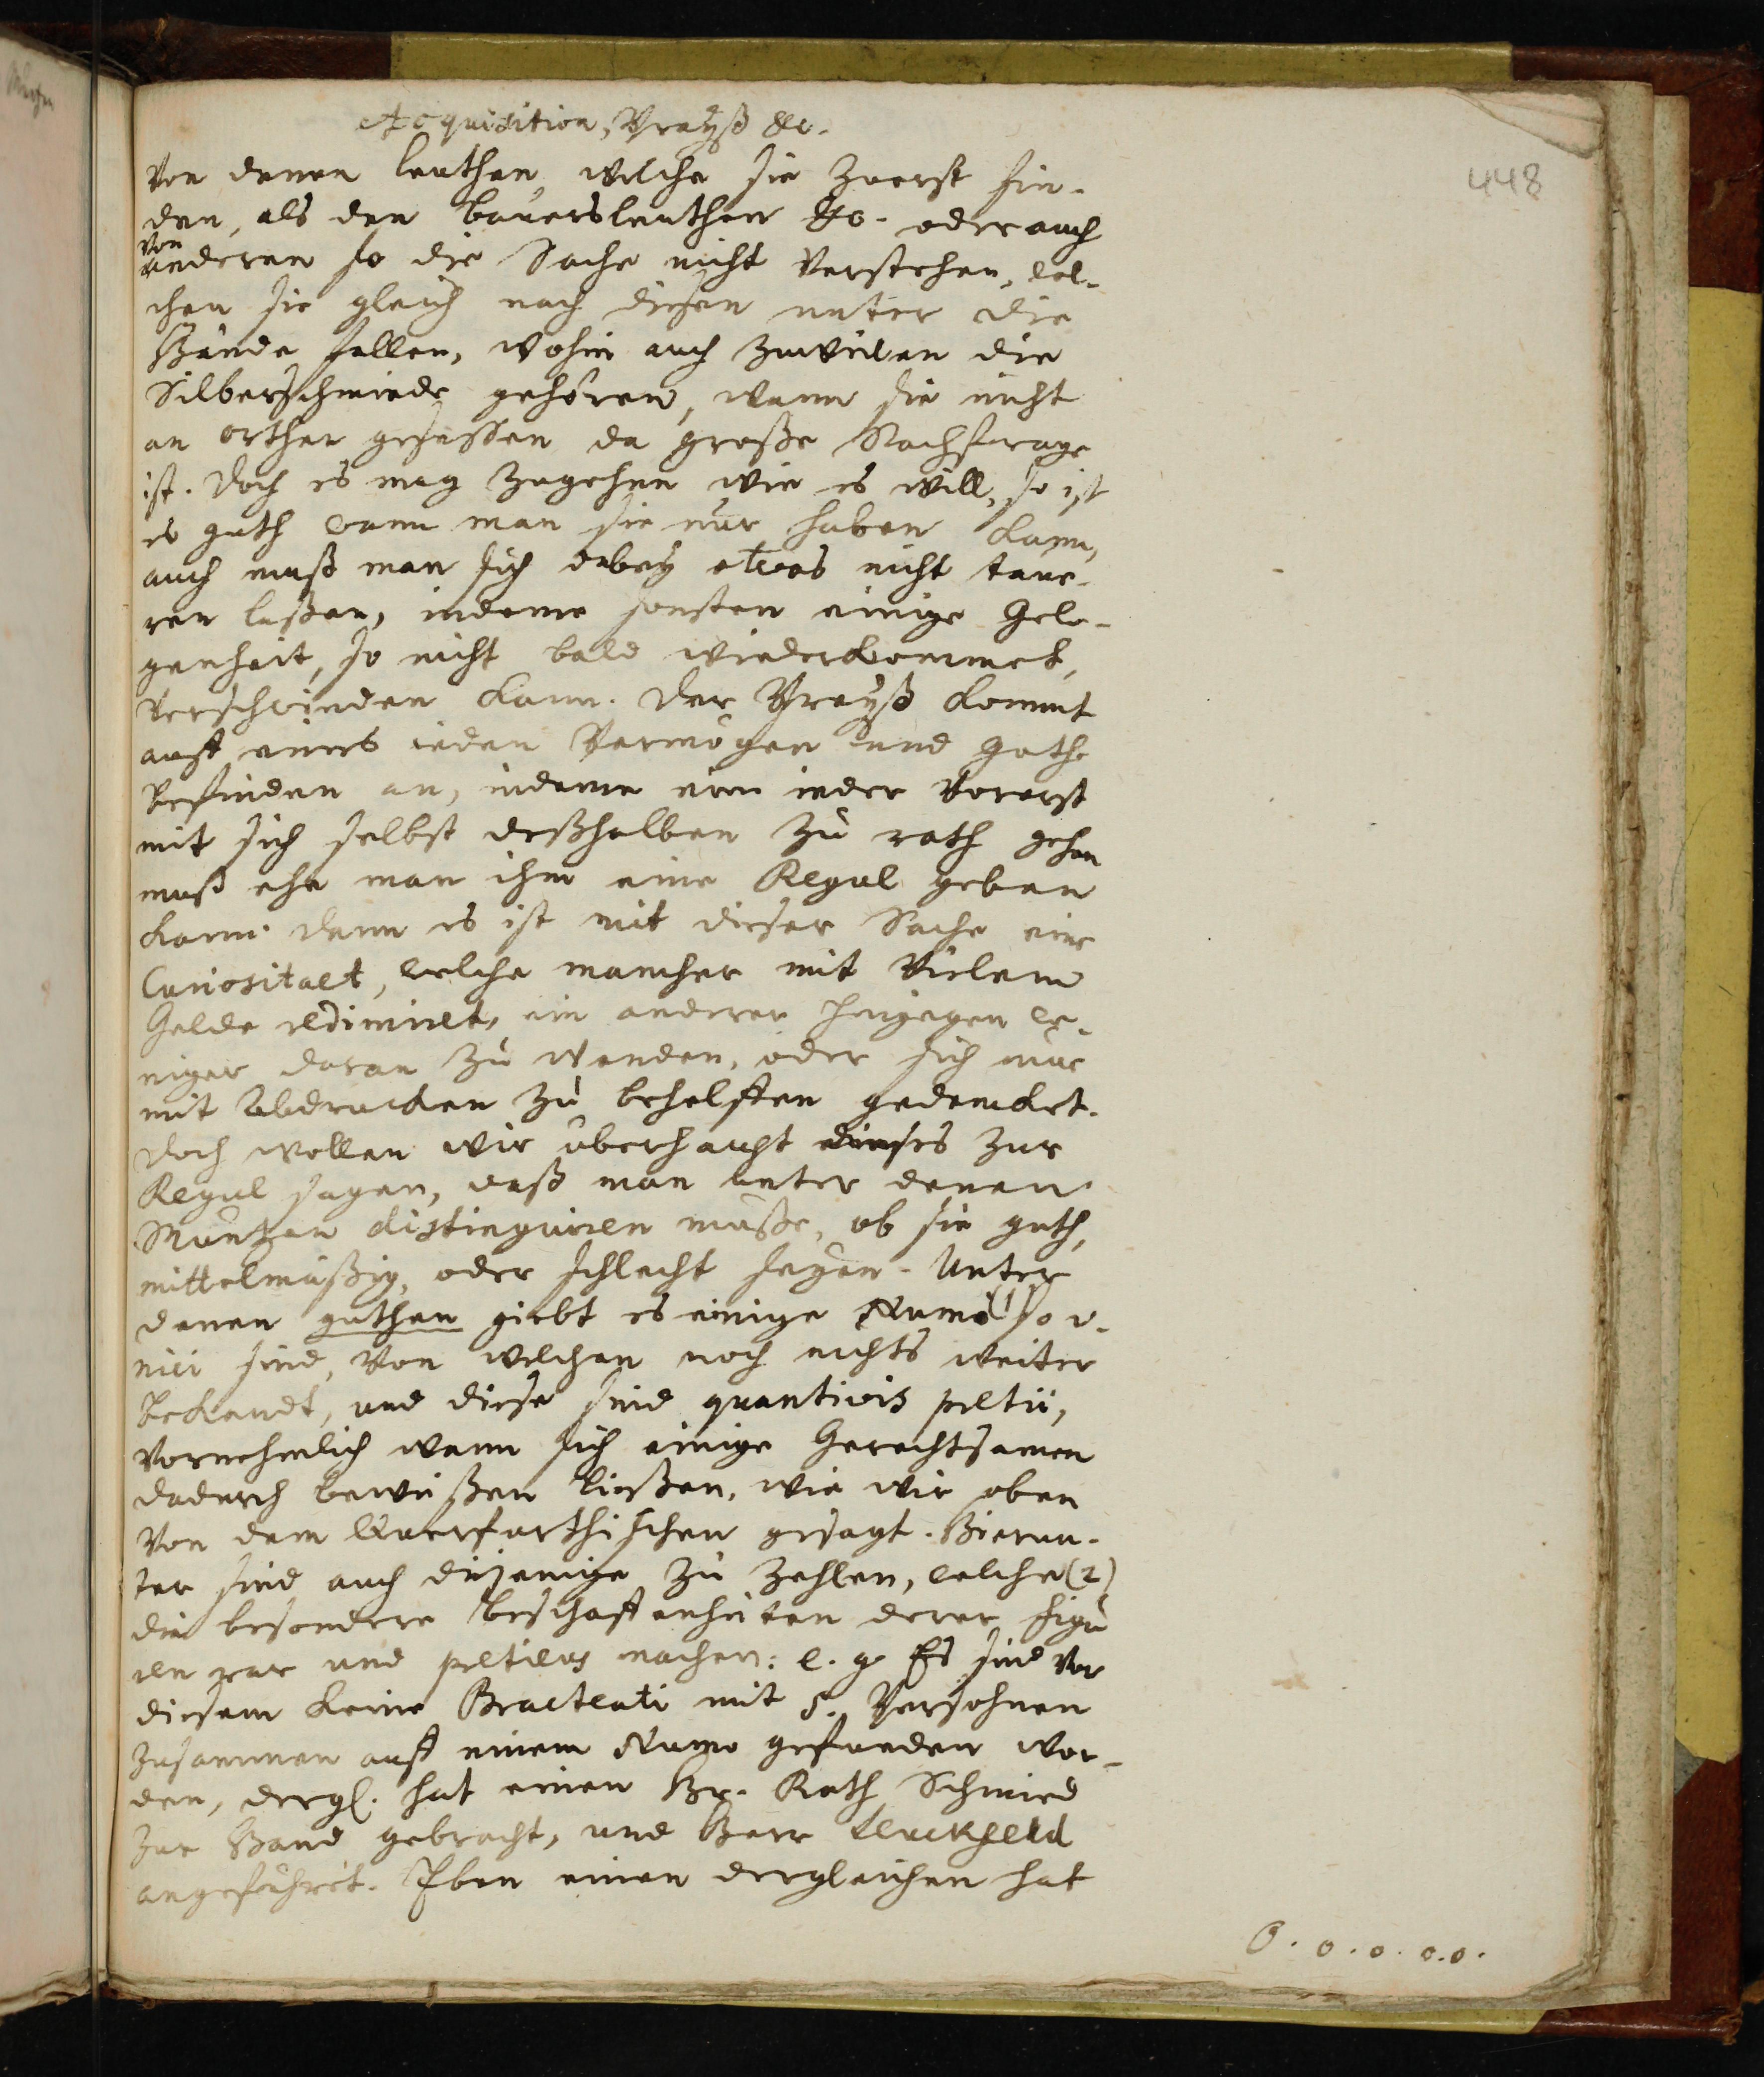 Acquisition, Preyß &c.
448
Von denen leuthen, welche sie zuerst fin-
den, als den bauersleuthen &c. oder auch
von
anderen so die Sache nicht verstehen, wel-
chen sie gleich nach diesen unter die
Hände fallen, wohin auch zuweilen die
Silberschmiede gehören, wenn sie nicht
an orthen gesessen da große Nachfrage
ist. Doch es mag zugehen wie es will, so ist
es guth wann man sie nur haben kann,
auch muß man sich dabey etwas nicht taue-
ren laßen, indeme sonsten einige Gele-
genheit, so nicht bald wiederkommet,
verschwinden kann. Der Preyß kommt
auff eines ieden Vermögen und guthe
befinden an, indeme ein ieder vorerst
mit sich selbst deßhalben zu rath gehen
muß ehe man ihm eine Regul geben
kann. Denn es ist mit dieser Sache eine
Curiositaet, welche mancher mit vielem
Gelde redimiret, ein anderer hingegen we-
niger daran zu wenden, oder sich nur
mit Abdrucken zu behelffen gedencket.
Doch wollen wir überhaupt dieses zur
Regul sagen, daß man unter denen
Müntzen distinguiren müße, ob sie guth,
mittelmäßig, oder schlecht seyen. Unter
denen guthen giebt es einige Numi (1) so u-
nici sind, von welchen noch nichts weiter
bekandt, und diese sind quantivis pretii,
vornehmlich wenn sich einige Gerechtsamen
dadurch beweißen ließen, wie wir oben
von dem Querfurthischen gesagt. Hierun-
ter sind auch diejenige zu zehlen, welche (2)
die besondere beschaffenheiten derer Figu
ren rar und pretieus machen: e. g. Es sind vor
diesem keine Bracteati mit 5. Persohnen
zusammen auff einem Numo gefunden wor-
den, dergl. hat einen Hr. Rath Schmied
zur Hand gebracht, und Herr Leuckfeld
angeführet. Eben einen dergleichen hat
O. o. o. o. o.